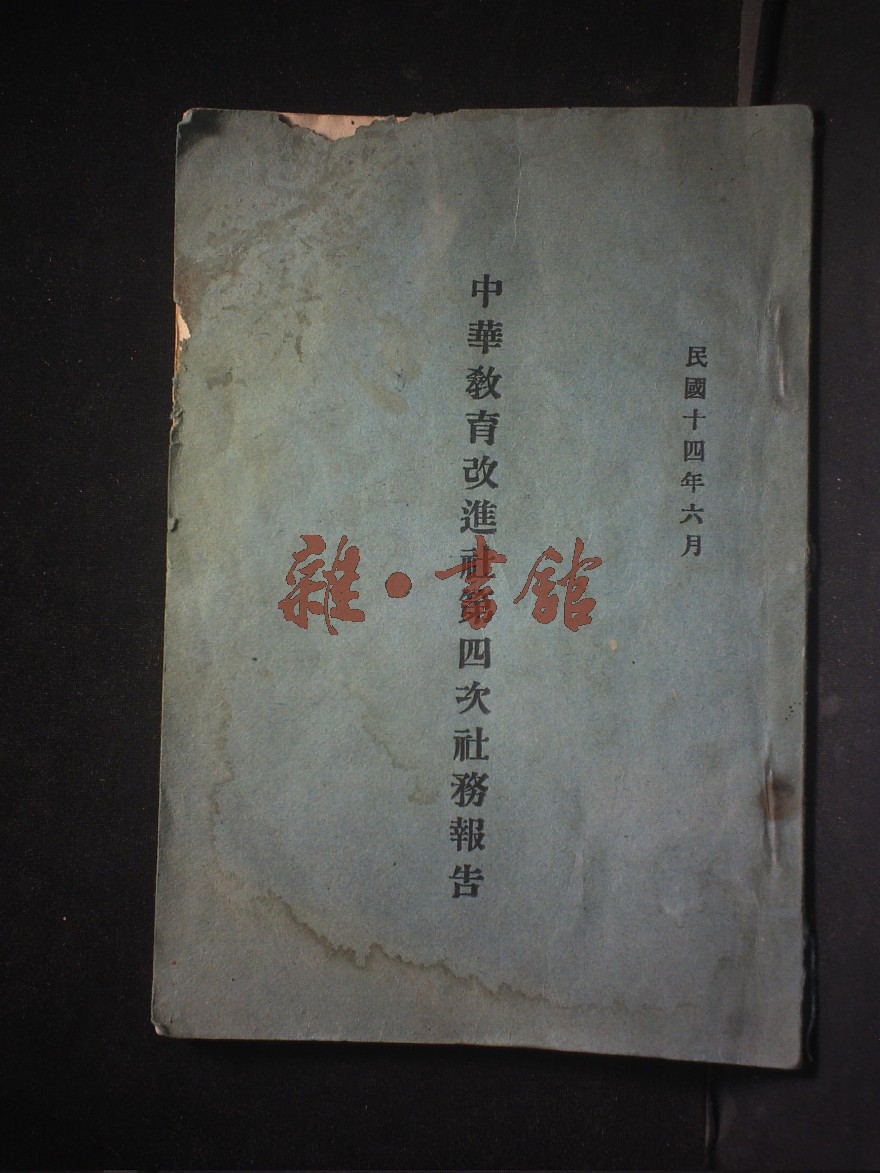 民國十四年六月
中華教育改進社第四次社務報告
雜·書館